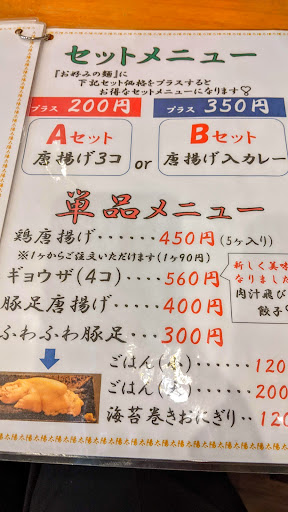 セットメニュー
『お好みの麺』に
下記セット価格をプラスすると
お得なセットメニューになります
プラス 200円
プラス 350円
Aセット
唐揚げ3コ
or
Bセット
唐揚げ入カレー
単品メニュー
鶏唐揚げ・・・・・・450円(5ヶ入り)
※1ヶからご注文いただけます(1ヶ90円)
ギョウザ(4コ)・・・560円
豚足唐揚げ・・・・400円
ふわふわ豚足・・・300円
新しく美味
なりました
肉汁飛び
餃子
ごはん(小)・・・・120
ごはん(大)・・・・200
海苔巻きおにぎり・・120
太陽太陽太陽太陽太陽太陽太陽太陽太陽太陽太陽